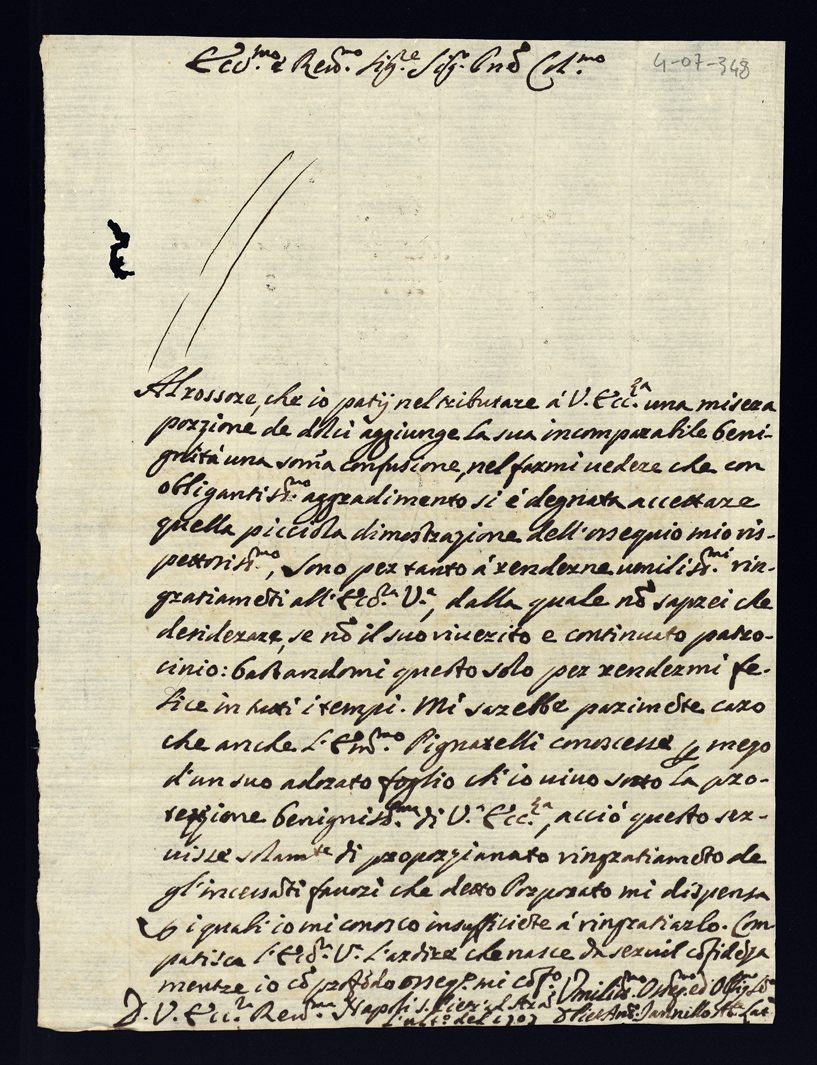 Ecc.mo e Rev.mo Sig.re Sig.r Pnē Col.mo
4-07-348
Al rossore, che io patij nel tributare á V. Ecc.za una misera
porzione de dolci aggiunge la sua incomparabile beni-
gnità una somā confusione, nel farmi vedere che con
obligantiss.mo aggradimento si é degnata accettare
quella picciola dimostrazione dell'ossequio mio ris-
pettosiss.mo, sono per tanto á renderne umiliss.mi rin-
gratiamēti all'Ecc.za V.a, dalla quale nō saprei che
desiderare, se nō il suo riverito e continuato patro-
cinio: bastandomi questo solo per rendermi fe-
lice in tutti i tempi. Mi sarebbe parimēte caro
che anche l'Em.mo Pignatelli conoscesse p mezo
d'un suo adorato foglio ch'io vivo sotto la pro-
tezzione benigniss.ma di V.a Ecc.za, acciò questo ser-
visse solam.te di proporzianato ringratiamēto de
gl'incessāti favori che detto Porporato mi dispensa
p i quali io mi conosco insufficiēte á ringratiarlo. Com-
patisca l'Ecc.za V.a l'ardire che nasce da servil cōfidēza
mentre io cō profōdo osseq.o mi cōf.o
D. V. Ecc.za Rev.ma Napoli S. Pier ad Ara
l'ult.o del 1703
Umiliss.mo Dev.mo ed Oblig.mo
D Piet Ant.o Iannillo Ab. Lat.